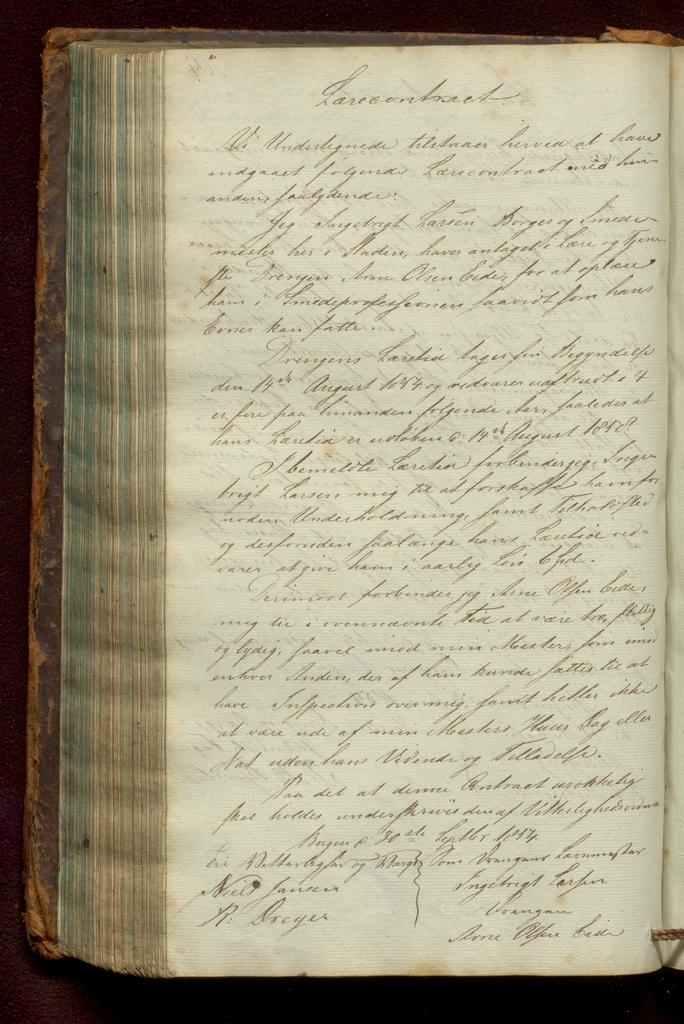 Lærecontract
Vi Underteignede tilstaaer herved at have
indgaaet følgende Lærecontract med hin-
anden, saalydende:
Jeg Ingebrigt Larsen Borger og Smede-
mester her i Staden, haver antaget i Lære og Tjene-
ste Drengen Arne Olsen Eide, for at oplære
ham i Smedeprofessionen saavidt som hans
Evner kan fatte.
Drengens Læretid tager sin Begyndelse
den 14de August 1854 og vedvarer uafbrudt i 4
er fire paa hinanden følgende Aar, saaledes at
hans Læretid er udløben d: 14de August 1858.
I bemeldte Læretid forbinder jeg, Inge-
brigt Larsen mig til at forskaffe ham for-
nøden Underholdning, samt Tilholdssted
og desforuden saalænge hans Læretid ved-
varer at give ham i aarlig Løn 6 Spd.
Derimod forbinder jeg Arne Olsen Eide,
mig til i ovennævnte Tid at være tro, flittig
og lydig, saavel imod min Mester, som imod
enhver Anden, der af ham kunde sættes til at
have Inspection over mig, samt heller ikke
at være ude af min Mesters Huus Dag eller
Nat uden hans Vidende og Tilladelse.
Paa det at denne Contract urokkelig
skal holdes underskrives den af Vitterlighedsvidner
Bergen d 30te Septbr 1854
Til Vitterlighed og Som Drengens Læremester
Niels Hansen Ingebrigt Larsen
R: Dreyer. Drengen
Arne Olsen Eide